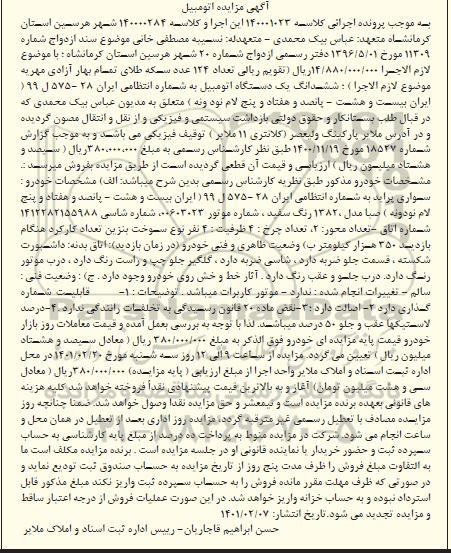 آگهی مزایده اتومبیل
به موجب پرونده اجرائی کلاسه ۱۴۰۰۰۱۰۲۳ این اجرا و کلاسه ۱۴۰۰۰۰۲۸۴ شهر هرسین استان
کرمانشاه متعهد: عباس بیک محمدی - متعهدله: نسیبه مصطفی خانی موضوع سند ازدواج شماره
۱۱۳۰۹ مورخ ۱۳۹۶/۵/۰۱ دفتر رسمی ازدواج شماره ۲۰ شهر هرسین استان کرمانشاه ؛ با موضوع
لازم الاجرا ۱۴/۸۸۰/۰۰۰/۰۰۰ ریال (تقویم ریالی تعداد ۱۲۴ عدد سکه طلای تمام بهار آزادی مهریه
موضوع لازم الاجرا ) ؛ ششدانگ یک دستگاه اتومبیل به شماره انتظامی ایران ۲۸ -۵۷۵ ل ۹۹ (
ایران بیست و هشت - پانصد و هفتاد و پنج لام نود ونه ) متعلق به مدیون عباس بیک محمدی که
در قبال طلب بستانکار و حقوق دولتی بازداشت سیستمی و فیزیکی و از نقل و انتقال مصون گردیده
و در آدرس ملایر پارکینگ ولیعصر (کلانتری ۱۱ ملایر ) توقیف فیزیکی می باشد و به موجب گزارش
شماره ۱۸۵۲۷ مورخ ۱۴۰۰/۱۱/۱۹ طبق نظر کارشناس رسمی به مبلغ ۳۸۰،۰۰۰،۰۰۰ ریال ( سیصد و
هشتاد میلیون ریال ) ارزیابی و قیمت آن قطعی گردیده است از طریق مزایده بفروش میرسد :.
مشخصات خودرو مذکور طبق نظریه کارشناس رسمی بدین شرح میباشد: الف) مشخصات خودرو :
سواری پراید به شماره انتظامی ایران ۲۸ -۵۷۵ ل ۹۹ ( ایران بیست و هشت - پانصد و هفتاد و پنج
لام نودونه ) صبا مدل ۱۳۸۲، رنگ سفید ، شماره موتور ۰۰۶۰۳۰۲۳، شماره شاسی ۱۴۱۲۲۸۲۱۵۵۹۸۸
شماره اتاق -تعداد محور: ۲، تعداد چرخ : ۴ ظرفیت : ۴ نفر نوع سوخت بنزین تعداد کارکرد هنگام
بازدید ۳۵۰ هزار کیلومتر ب) وضعیت ظاهری و فنی خودرو (در زمان بازدید): اتاق بدنه: داشبورت
شکسته ، قسمت جلو ضربه دارد ، شاسی ضربه دارد ، گلگیر جلو چپ و راست رنگ دارد ، درب موتور
رنگ دارد. درب جلو و عقب رنگ دارد . آثار خط و خش روی خودرو وجود دارد . ج) : وضعیت فنی :
سالم - تغییرات انجام شده : ندارد - موتور کاربرات میباشد . توضیحات : ۱- قابلیت شماره
گذاری دارد ۲- اصالت دارد : ۳-نقض ماده ۲۰ قانون رسیدگی به تخلفات رانندگی ندارد . ۴-درصد
لاستیکها عقب و جلو ۵۰ درصد میباشد. لذا با توجه به بررسی بعمل آمده و قیمت معاملات روز بازار
خودرو قیمت پایه مزایده ای خودرو فوق الذکر به مبلغ ۳۸۰/۰۰۰/۰۰۰ ریال ( معادل سیصد و هشتاد
میلیون ریال ) تعیین می گردد. مزایده از ساعت ۹ الی ۱۲ روز سه شنبه مورخ ۱۴۰۱/۰۲/۲۰ در محل
اداره ثبت اسناد و املاک ملایر واحد اجرا از مبلغ ارزیابی ( پایه مزایده) ۳۸۰/۰۰۰/۰۰۰ ریال (معادل
سی و هشت میلیون تومان) آغاز و به بالاترین قیمت پیشنهادی نقداً فروخته خواهد شد. کلیه هزینه
های قانونی بعهده برنده مزایده است و نیمعشر و حق مزایده نقدا وصول خواهد شد. ضمنا چنانچه روز
مزایده مصادف با تعطیل رسمی غیر مترقبه گردد، مزایده روز اداری بعد از تعطیل در همان محل و
ساعت انجام می شود. شرکت در مزایده منوط به پرداخت ده درصد از مبلغ پایه کارشناسی به حساب
سپرده ثبت و حضور خریدار یا نماینده قانونی او در جلسه مزایده است . برنده مزایده مکلف است ما
به التفاوت مبلغ فروش را ظرف مدت پنج روز از تاریخ مزایده به حساب صندوق ثبت تودیع نماید و
در صورتی که ظرف مهلت مقرر مانده فروش را به حساب سپرده ثبت واریز نکند مبلغ مذکور قابل
استرداد نبوده و به حساب خزانه واریز خواهد شد. در این صورت عملیات فروش از درجه اعتبار ساقط
و مزایده تجدید می شود. تاریخ انتشار: ۱۴۰۱/۰۲/۰۷
حسن ابراهیم قاجاریان - رییس اداره ثبت اسناد و املاک ملایر